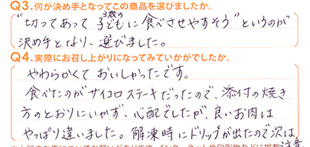 Q3.何が決め手となってこの商品を選びましたか。
"切ってあって 3歳の子どもに 食べさせやすそう" というのが
決め手となり、選びました。
Q4.実際にお召し上がりになってみていかがでしたか。
やわらかくて おいしかったです。
食べたのがサイコロステーキだったので、添付の焼き
方のとおりにいかず、心配でしたが、良いお肉は
やっぱり違いました。解凍時にドリップが出たので次は注意